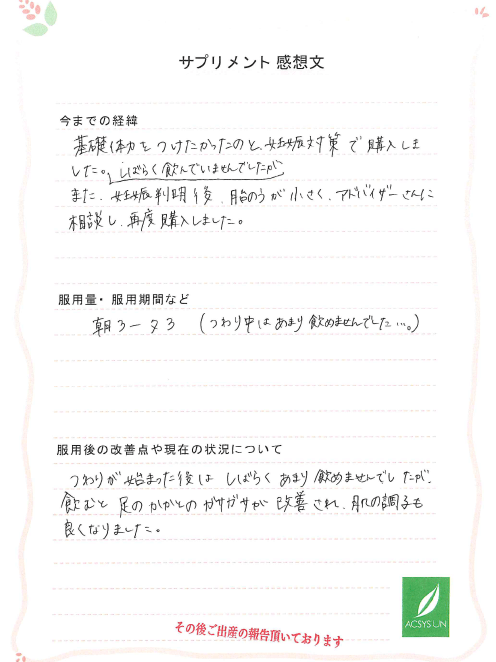 サプリメント 感想文
今までの経緯
基礎体力をつけたかったのと、妊娠対策で購入しま
した。しばらく飲んでいませんでしたが
また、妊娠判明後、胎のうが小さく、アドバイザーさんに
相談し、再度購入しました。
服用量・服用期間など
朝3ー夕3 (つわり中はあまり飲めませんでした…。)
服用後の改善点や現在の状況について
つわりが始まった後はしばらくあまり飲めませんでしたが、
飲むと足のかかとのガサガサが改善され、肌の調子も
良くなりました。
ACSYS UN
その後ご出産の報告頂いております